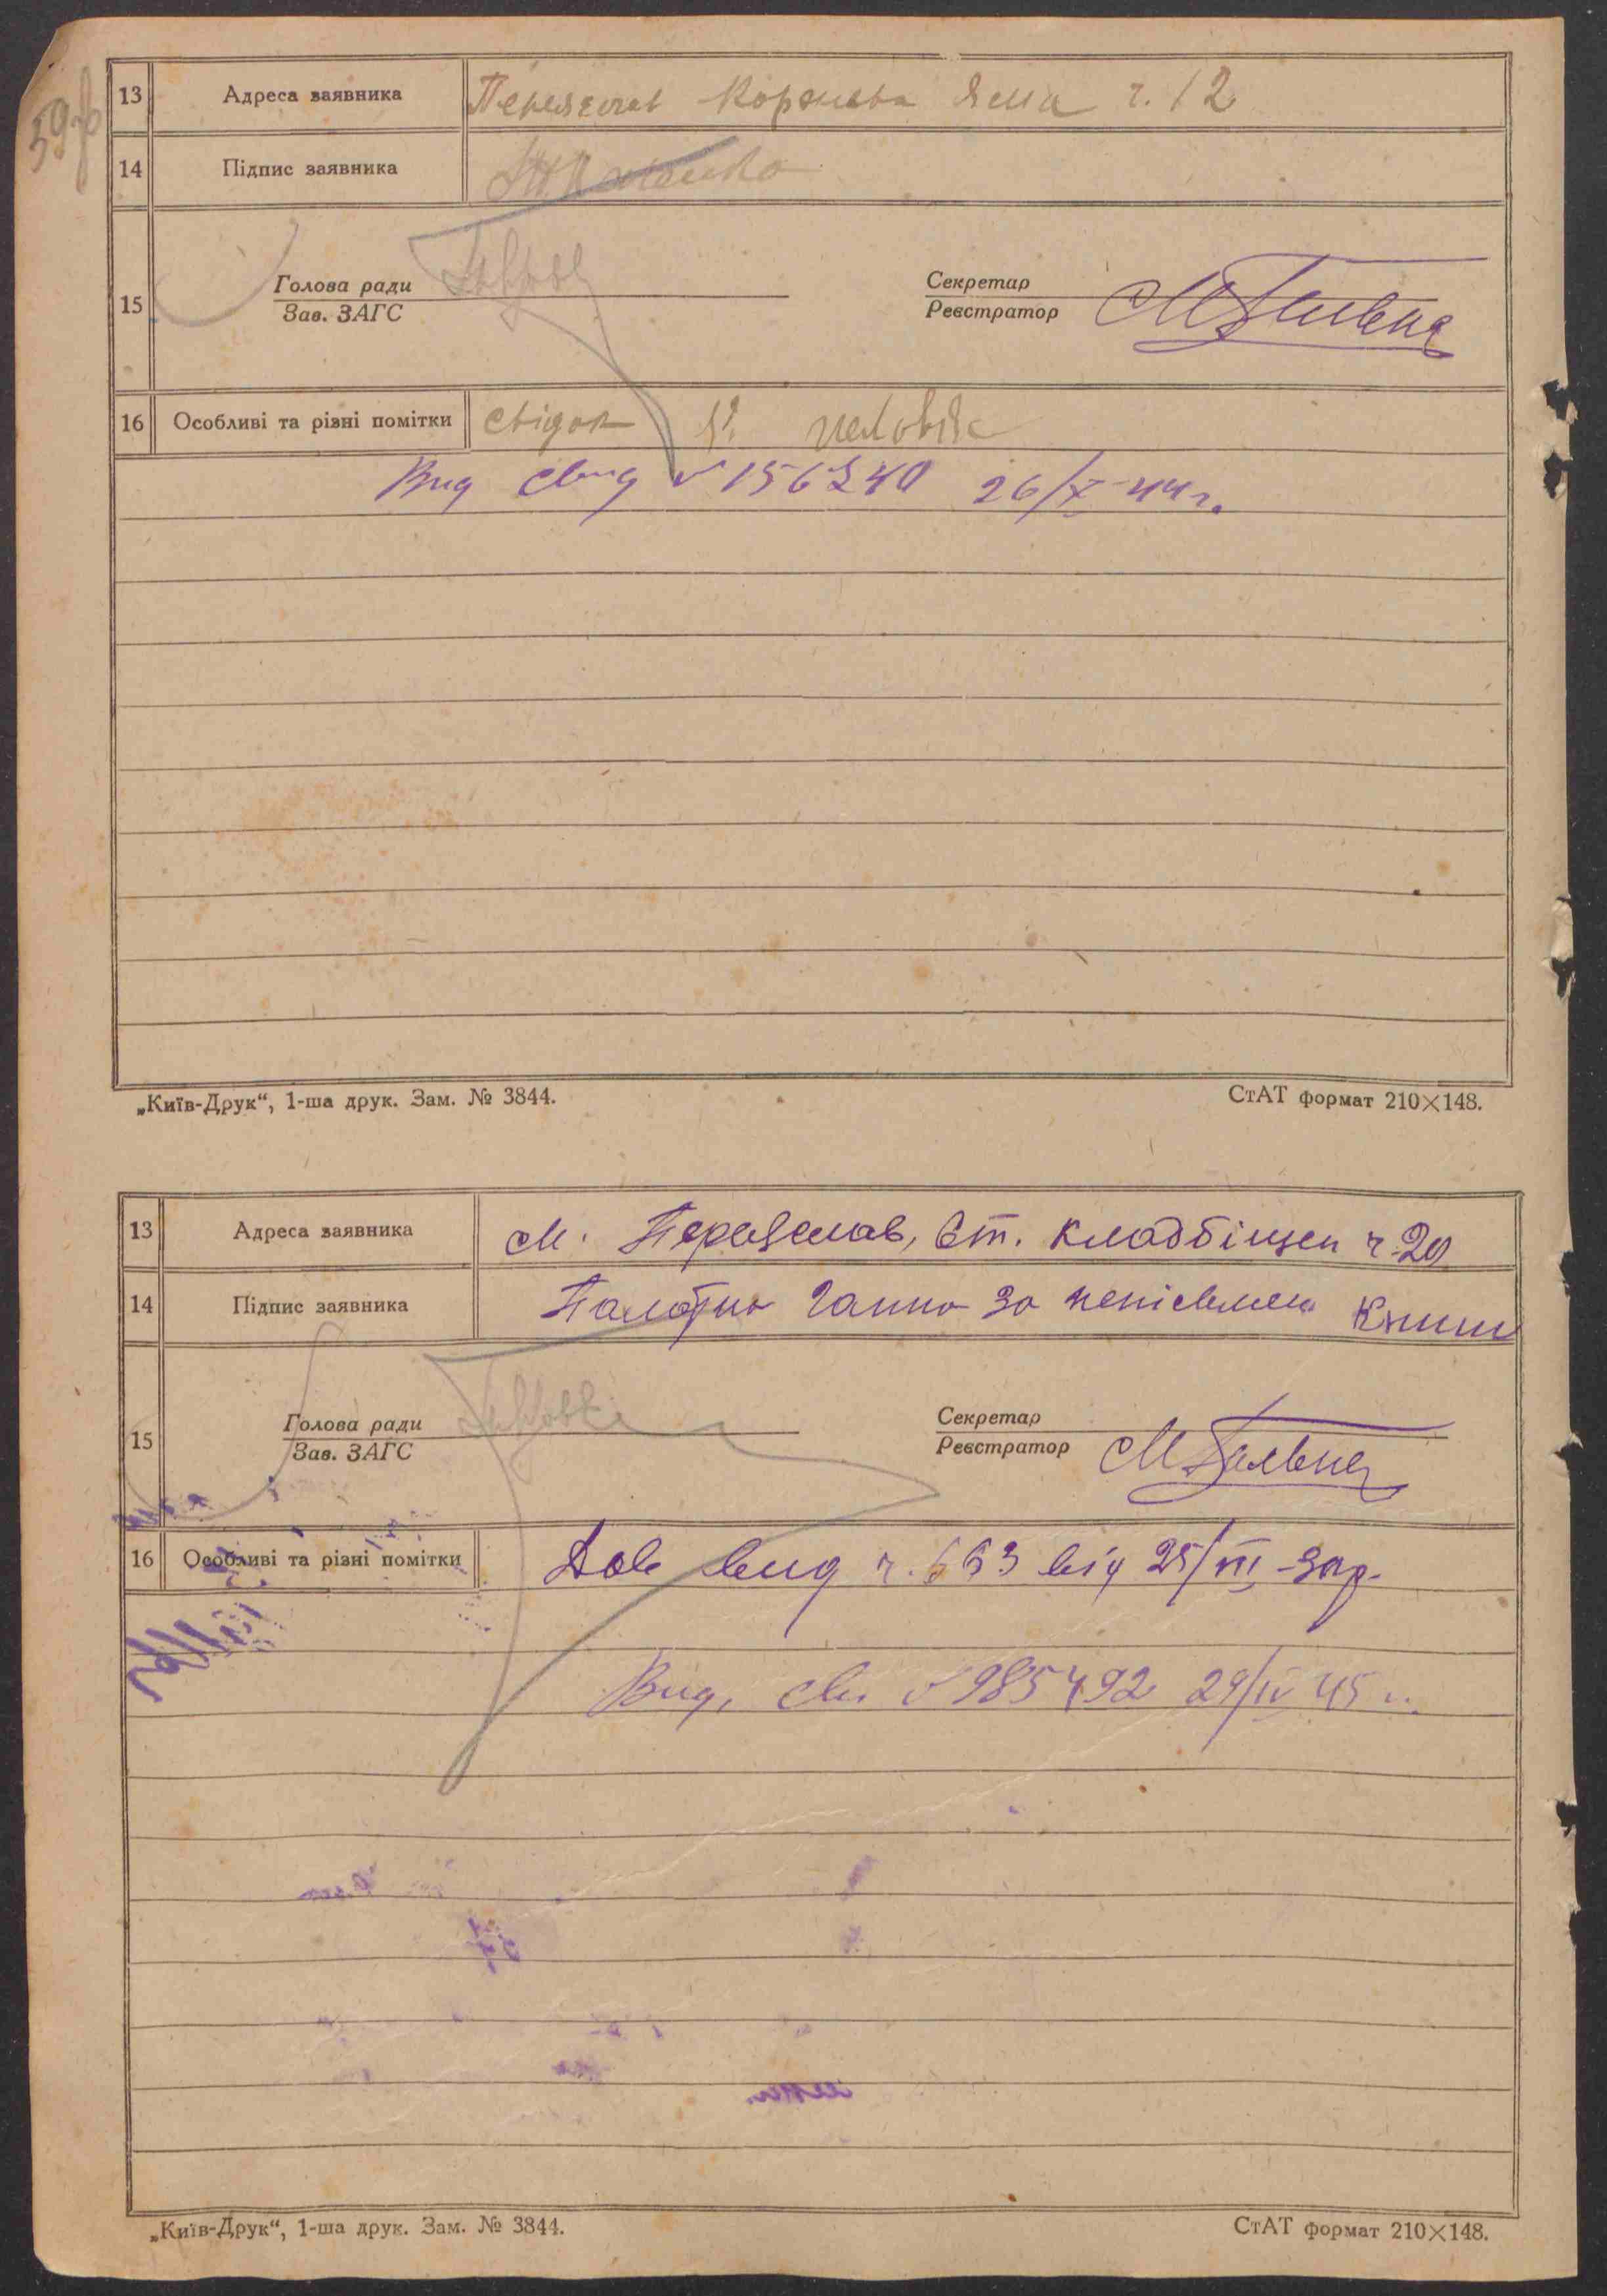 59зв
13 Адреса заявника Переяслав Коржева Яма ч. 12
14 Підпис заявника
15 Голова ради
Зав. ЗАГС
Секретар
Реєстратор
16 Особливі та різні помітки свідок її чоловік
Вид свид № 156240 26/X-44 г.
„Київ-Друк“, 1-ша друк. Зам. № 3844. СтАТ формат 210×148.
13 Адреса заявника м. Переяслав, вт. Кладбіщен ч. 20
14 Підпис заявника Ганна за
15 Голова ради
Зав. ЗАГС
Секретар
Реєстратор
16 Особливі та різні помітки Дов вид ч. 663 від 25/VIII-
Вид. св. № 985492 29/IV 45 г.
„Київ-Друк“, 1-ша друк. Зам. № 3844. СтАТ формат 210×148.